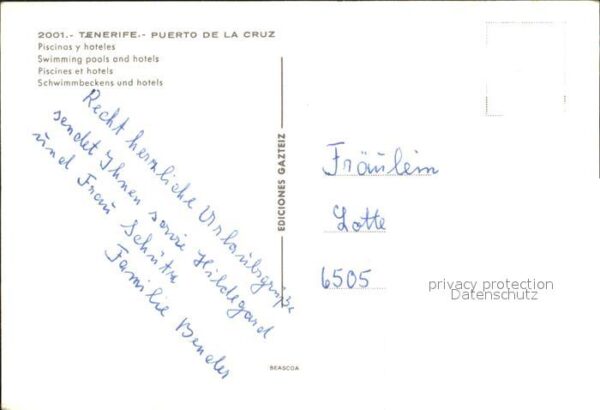 2001.- TENERIFE.- PUERTO DE LA CRUZ
Piscinas y hoteles
Swimming pools and hotels
Piscines et hotels
Schwimmbeckens und hotels
Recht herzliche Urlaubsgrüße
sendet Ihnen sowie Hildegard
und Frau Schütze
Familie Bender
EDICIONES GAZTEIZ
Fräulein
Lotte
6505
privacy protection
Datenschutz
BEASCOA